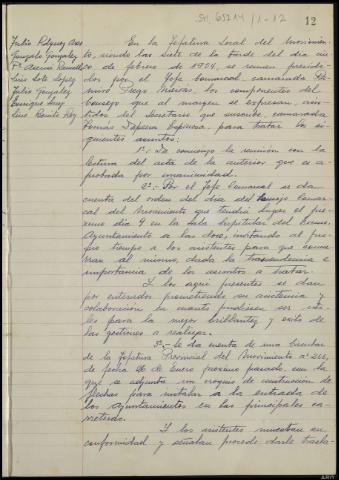 SM 65214/1-12
12
Julio Rdguez Ares
Gonzalo González
Pº Asenio
Luis Soto López
Julio González
Enrique
Luis Benito Rey
En la Jefatura Local del Movimien-
to, siendo las siete de la tarde del día cin
co de febrero de 1954, se reunen presidi-
dos por el Jefe Comarcal, camarada Ra-
miro Diego Mieras, los componentes del
Consejo que al margen se expresan, asis-
tidos del Secretario que suscribe, camarada
Tomás Tapia para tratar los si-
guientes asuntos:
1º.- Da comienzo la reunión con la
lectura del acta de la anterior que es a-
probada por unanimidad.
2º.- Por el Jefe Comarcal se da
cuenta del orden del día del Consejo Comar-
cal del Movimiento que tendrá lugar el pró-
ximo día 9 en la Sala Capitular del Excmo.
Ayuntamiento a las doce, invitando al pro-
pio tiempo a los asistentes para que concu-
rran al mismo, dada la trascendencia e
importancia de los asuntos a tratar.
Y los aquí presentes se dan
por enterados prometiendo su asistencia y
colaboración en cuanto pudiesen ser úti-
les para la mejor brillantez y éxito de
las gestiones a realizar.
3º.- Se da cuenta de una circular
de la Jefatura Provincial del Movimiento nº 266,
de fecha 26 de Enero próximo pasado, con la
que se adjunta un croquis de construcción de
flechas para instalar a la entrada de
los Ayuntamientos en las principales ca-
rreteras.
Y los asistentes muestran su
conformidad y señalan procede darle trasla-